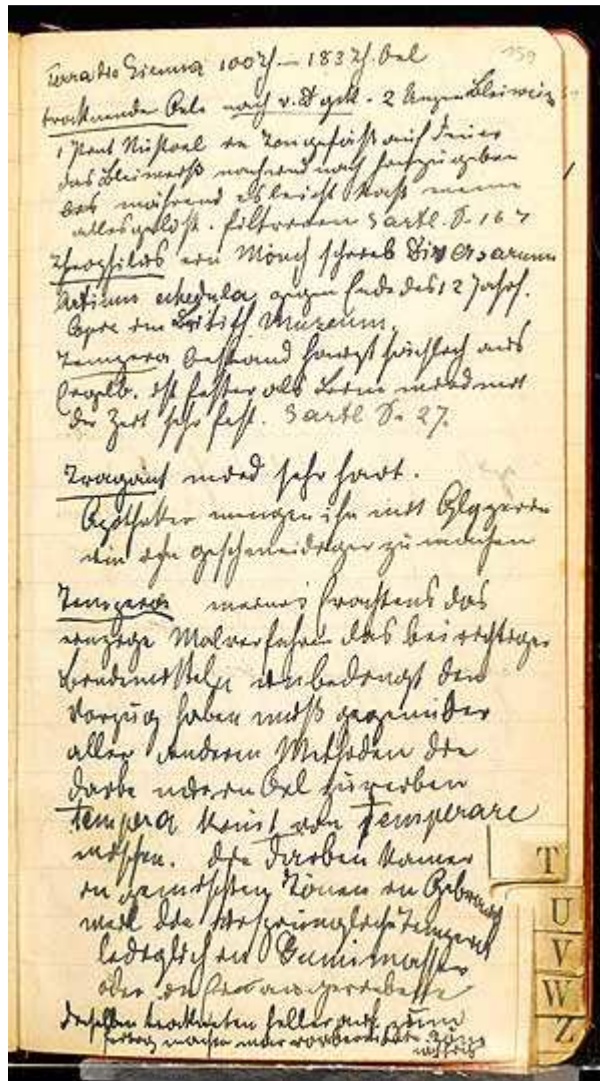 Terra di Sienna 100 – 183 Oel
trocknende Oele nach v. D. 2 Unzen Bleiweis
1 Nußoel in Tongefäß auf Feuer
das Bleiweiß nach und nach hinzugeben
bis während es leicht wenn
alles gelöst. filtrieren S. 167
Theophilus ein Mönch schrieb Diversarum
Artium schedula gegen Ende des 12 Jahrh.
Copie im British Museum.
Tempera bestand hauptsächlich aus
ist fester als Leim wird mit
der Zeit sehr fest. S. 27.
Tragant wird sehr hart.
Apotheker mengen ihn mit Glyzerin
um ihn geschmeidiger zu machen
Tempera meines Erachtens das
einzige Malverfahren das bei richtiger
Bindemitteln unbedingt den
Vorzug haben muß gegenüber
allen anderen Methoden die
Farbe in Oel zu reiben
Tempera kommt von Temperare
mischen. die Farben kamen
in gemischten Tönen in Gebrauch
weil die ursprüngliche Tempera
lediglich in Gummiwasser
oder in angeriebene
dieselben trockneten heller auf zum
machen
159
T
U
V
W
Z